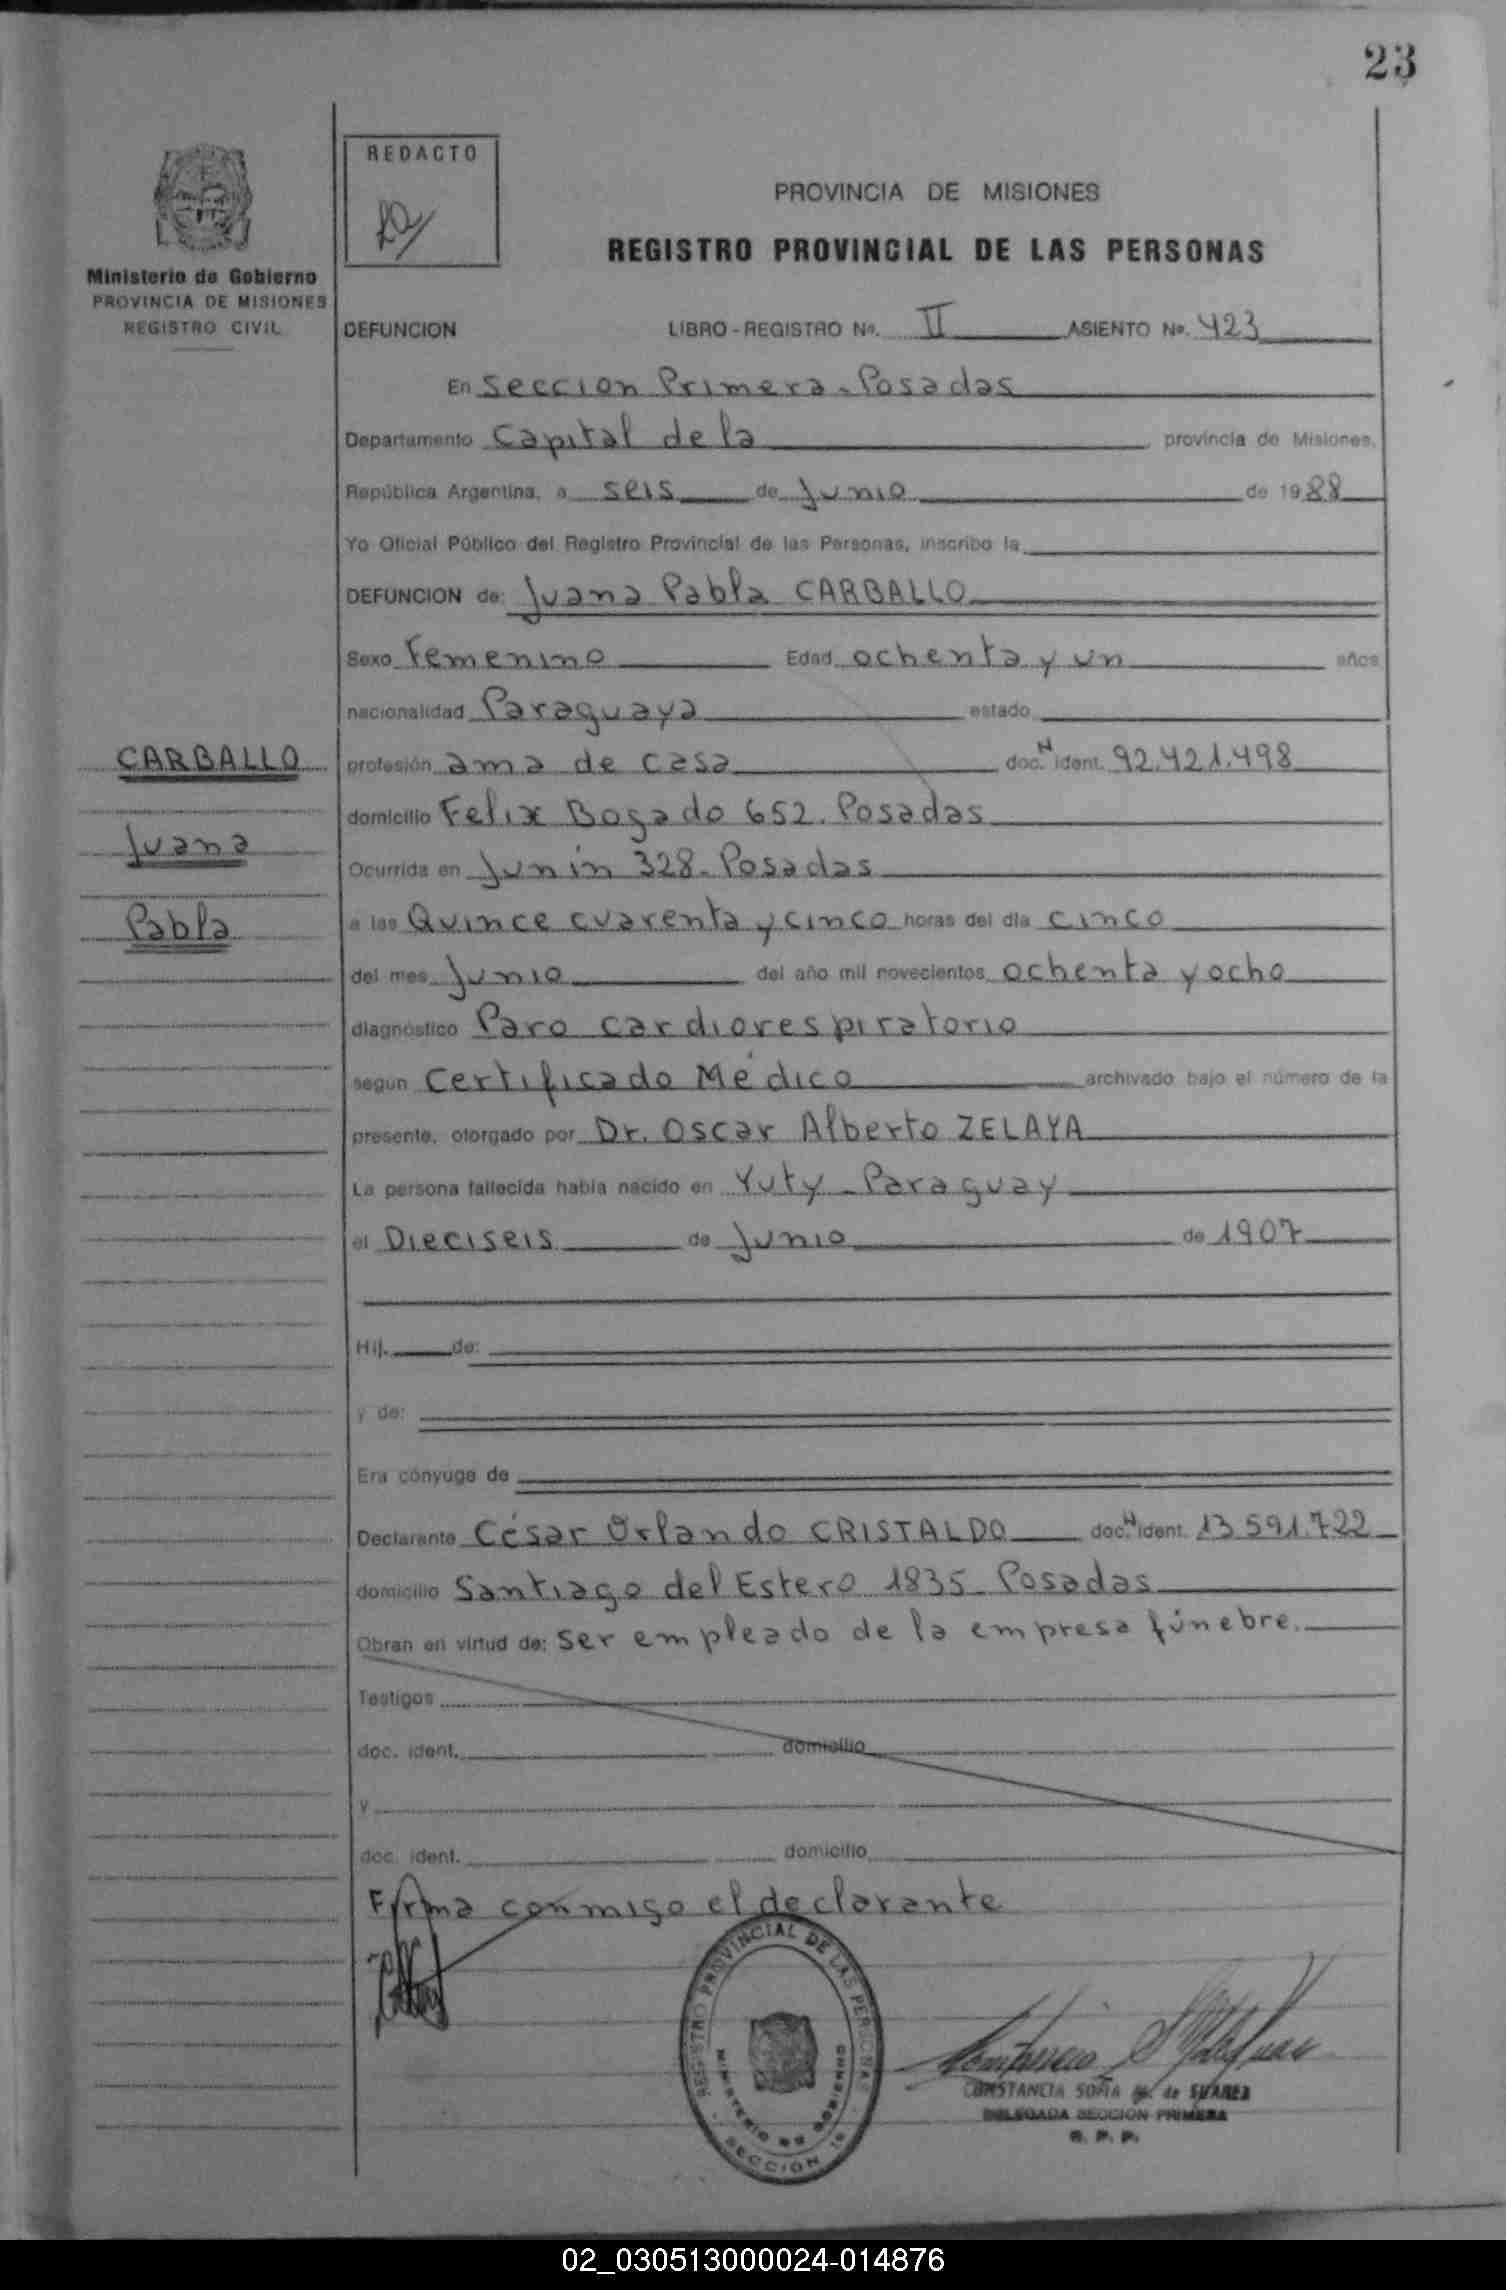 23
REDACTO
PROVINCIA DE MISIONES
REGISTRO PROVINCIAL DE LAS PERSONAS
Ministerio de Gobierno
PROVINCIA DE MISIONES
REGISTRO CIVIL
DEFUNCION LIBRO - REGISTRO Nº. II ASIENTO Nº. 423
En Seccion Primera - Posadas
Departamento Capital de la provincia de Misiones,
República Argentina, a seis de Junio de 1988
Yo Oficial Público del Registro Provincial de las Personas, inscribo la
DEFUNCION de: Juana Pabla CARBALLO
Sexo Femenino Edad ochenta y un años
nacionalidad Paraguaya estado
CARBALLO
profesión ama de casa doc. N ident. 92.421.498
domicilio Felix Bogado 652. Posadas
Juana
Ocurrida en Junín 328 - Posadas
Pabla
a las Quince cuarenta y cinco horas del día cinco
del mes Junio del año mil novecientos ochenta y ocho
diagnóstico Paro cardiorespiratorio
según Certificado Médico archivado bajo el número de la
presente, otorgado por Dr. Oscar Alberto ZELAYA
La persona fallecida había nacido en Yuty - Paraguay
el Dieciseis de Junio de 1907
Hij. de:
y de:
Era cónyuge de
Declarante César Orlando CRISTALDO doc. N ident. 13.591.722
domicilio Santiago del Estero 1835 - Posadas
Obran en virtud de: ser empleado de la empresa fúnebre.
Testigos
doc. ident. domicilio
y
doc. ident. domicilio
Firma conmigo el declarante
REGISTRO PROVINCIAL DE LAS PERSONAS
MINISTERIO DE GOBIERNO
SECCION 1ª
CONSTANCIA SOFIA M. de SUAREZ
DELEGADA SECCION PRIMERA
R. P. P.
02_030513000024-014876